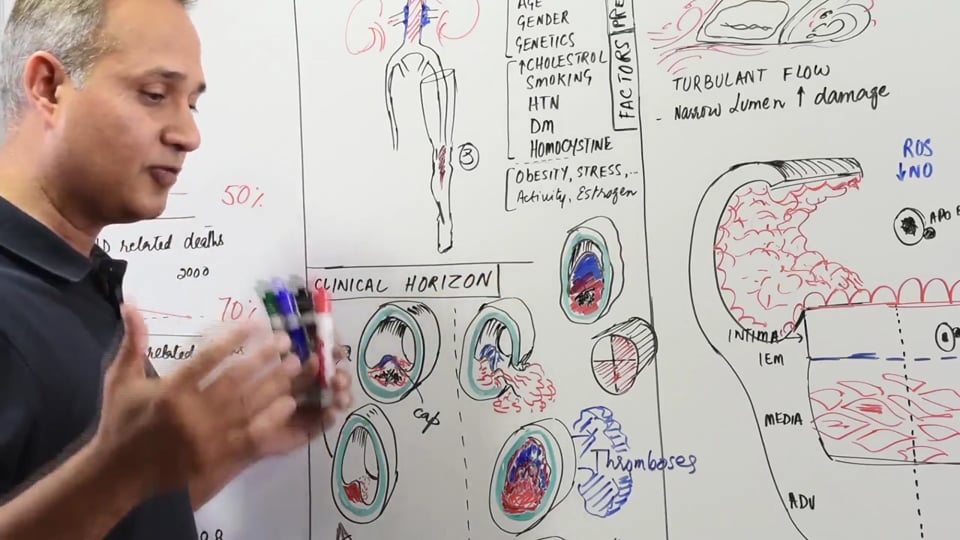 50%
related deaths
2000
70%
related
AGE
GENDER
GENETICS
↑CHOLESTROL
SMOKING
HTN
DM
HOMOCYSTINE
OBESITY, STRESS, ...
Activity, Estrogen
FACTORS
PRE
3
CLINICAL HORIZON
cap
Thromboses
TURBULANT FLOW
- Narrow Lumen ↑ damage
ROS
↓NO
APO
INTIMA
IEM
MEDIA
ADV